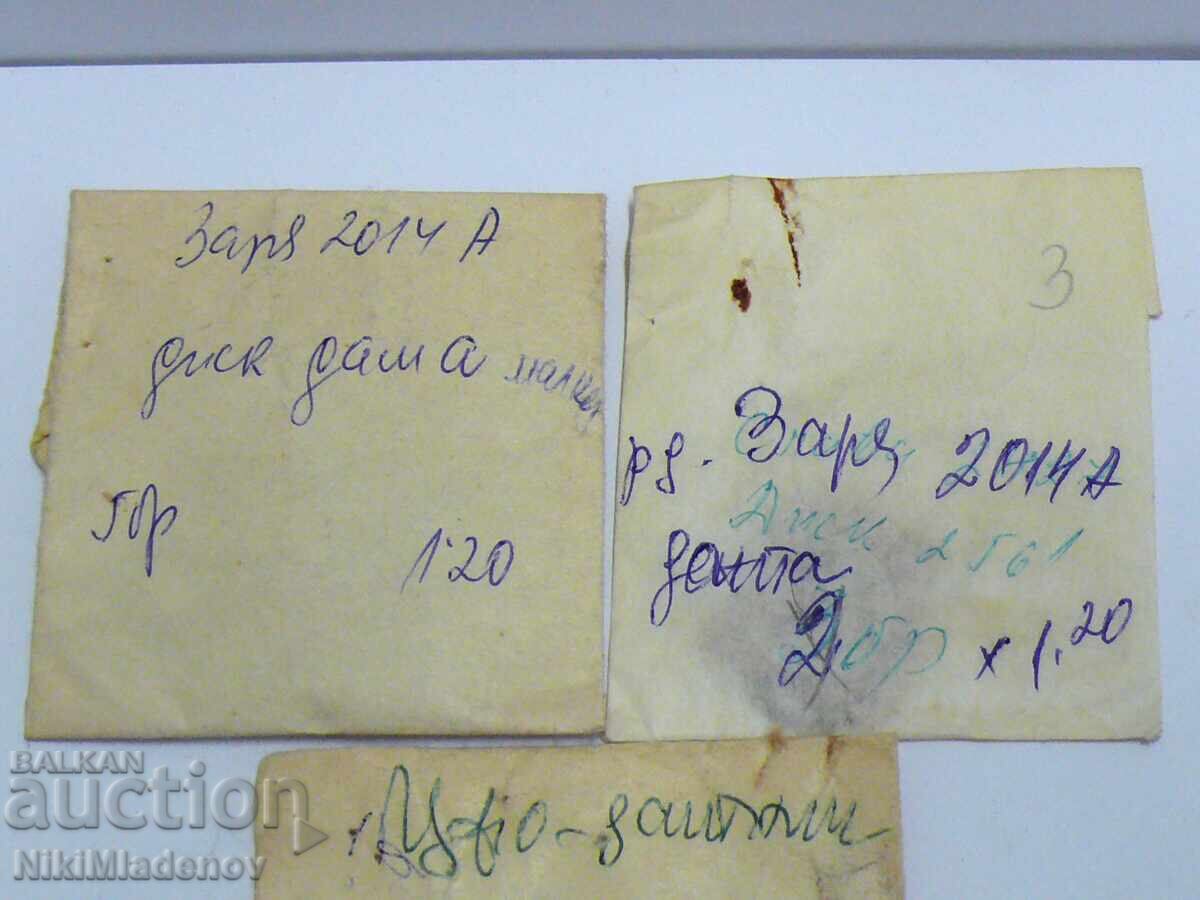 Заря 2014 А
диск дама
1бр
1.20
3
рд. Заря 2014 А
Диск 2561
дента
2 бр x 1.20
BALKAN
auction
NikiMladenov